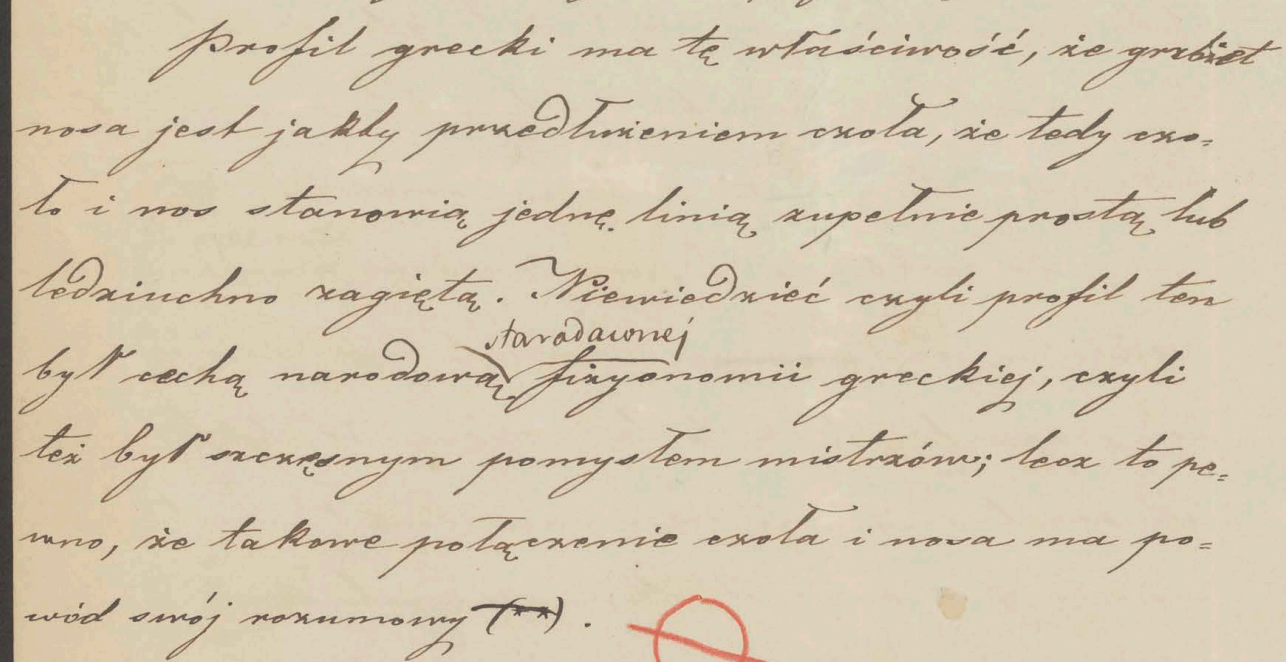 Profil grecki ma tę właściwość, że grzbiet
nosa jest jakby przedłużeniem czoła, że tedy czo=
ło i nos stanowią jednę linią zupełnie prostą lub
ledziuchno zagiętą. Niewiedzieć czyli profil ten
starodawnej
był cechą narodową fizyonomii greckiej, czyli
też był szczęsnym pomysłem mistrzów; lecz to pe=
wno, że takowe połączenie czoła i nosa ma po=
wód swój rozumowy (**).